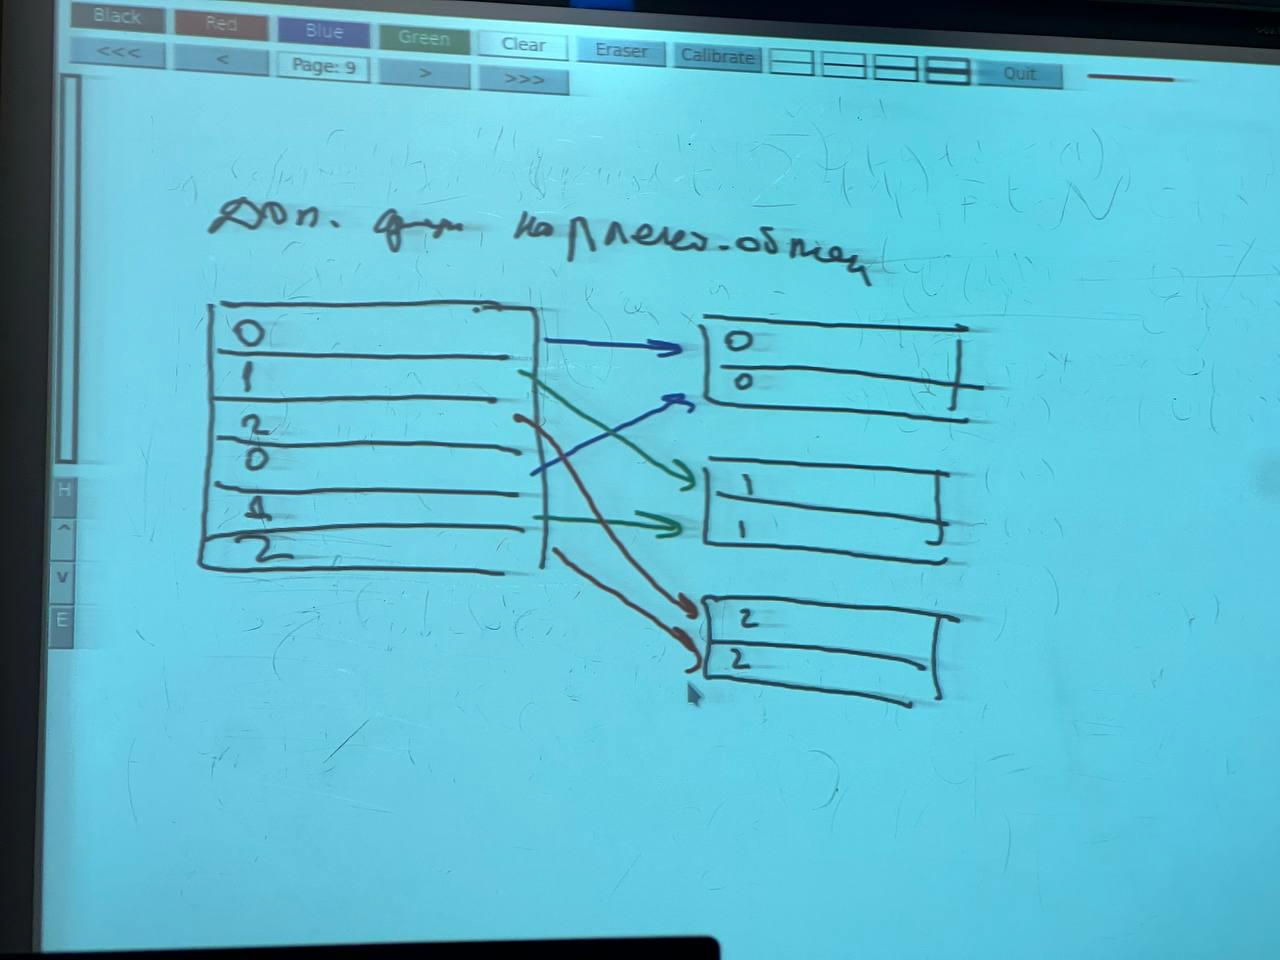 Black Red Blue Green Clear Eraser Calibrate Quit
<<< < Page: 9 > >>>
H
^
v
E
Доп. функ коллект. обмен
0
1
2
0
1
2
0
0
1
1
2
2